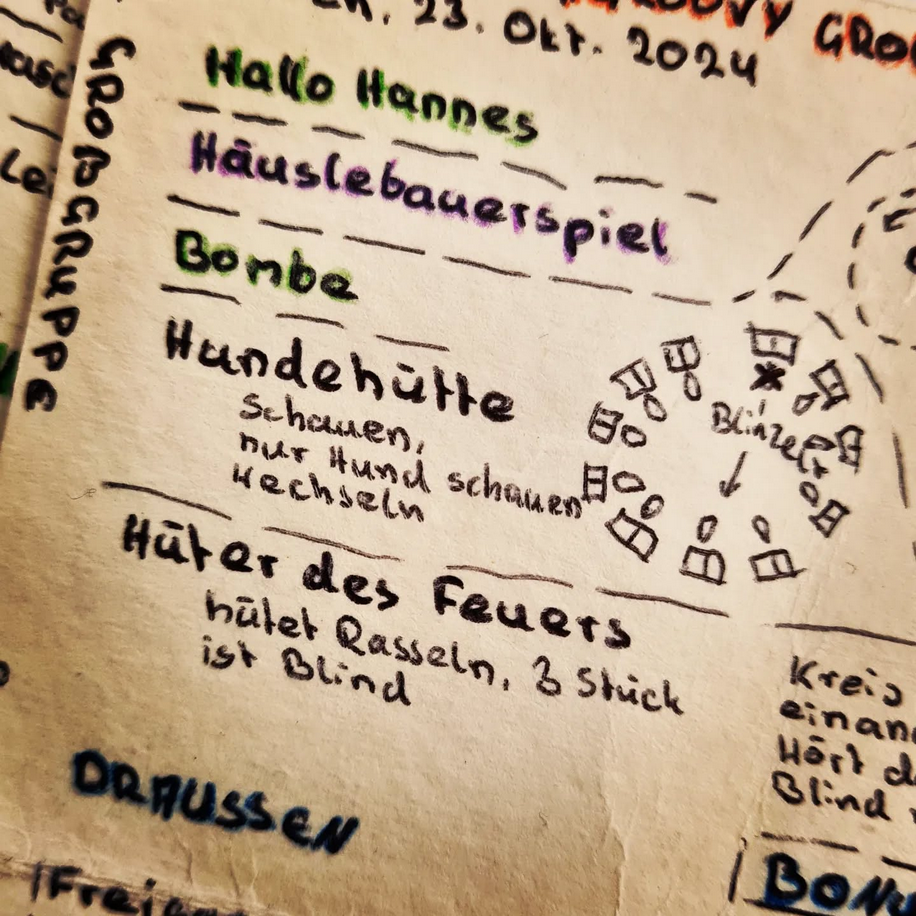 23. Okt. 2024
GROOVY
GROßGRUPPE
Hallo Hannes
Häuslebauerspiel
Bombe
Hundehütte
schauen,
nur Hund schauen
Wechseln
Blinzelt
Hüter des Feuers
hütet Rasseln, 3 Stück
ist Blind
DRAUSSEN
Kreis
Hört
Blind